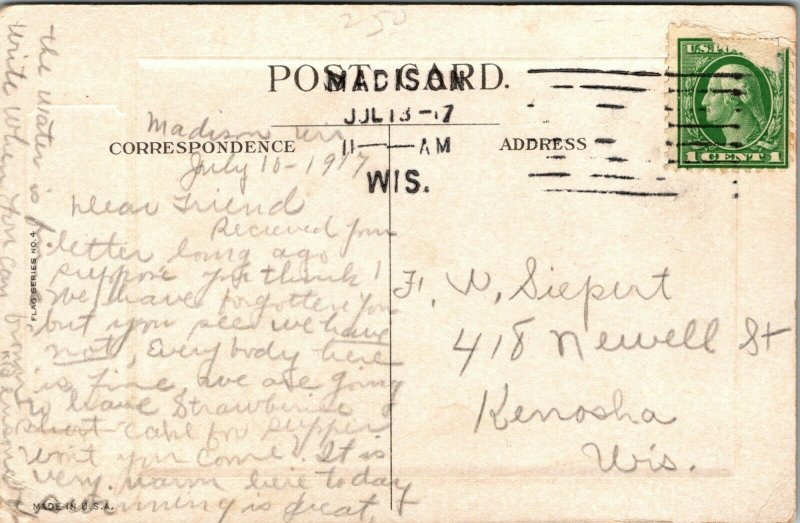 250
U.S. POS
1 CENT 1
POST CARD.
MADISON
JUL 13 -17
11 — AM
WIS.
CORRESPONDENCE
ADDRESS
Madison Wis
July 10-1917
Dear Friend
Recieved your
letter long ago
suppose you think
we have forgotten you
but you see we have
not, Everybody here
is fine, we are going
to have Strawberrie
short cake for supper
wont you come? It is
very warm here today
swimming is great, &
the water is
write when you can
F. W. Siepert
418 Newell St
Kenosha
Wis.
FLAG SERIES NO. 4
MADE IN U.S.A.